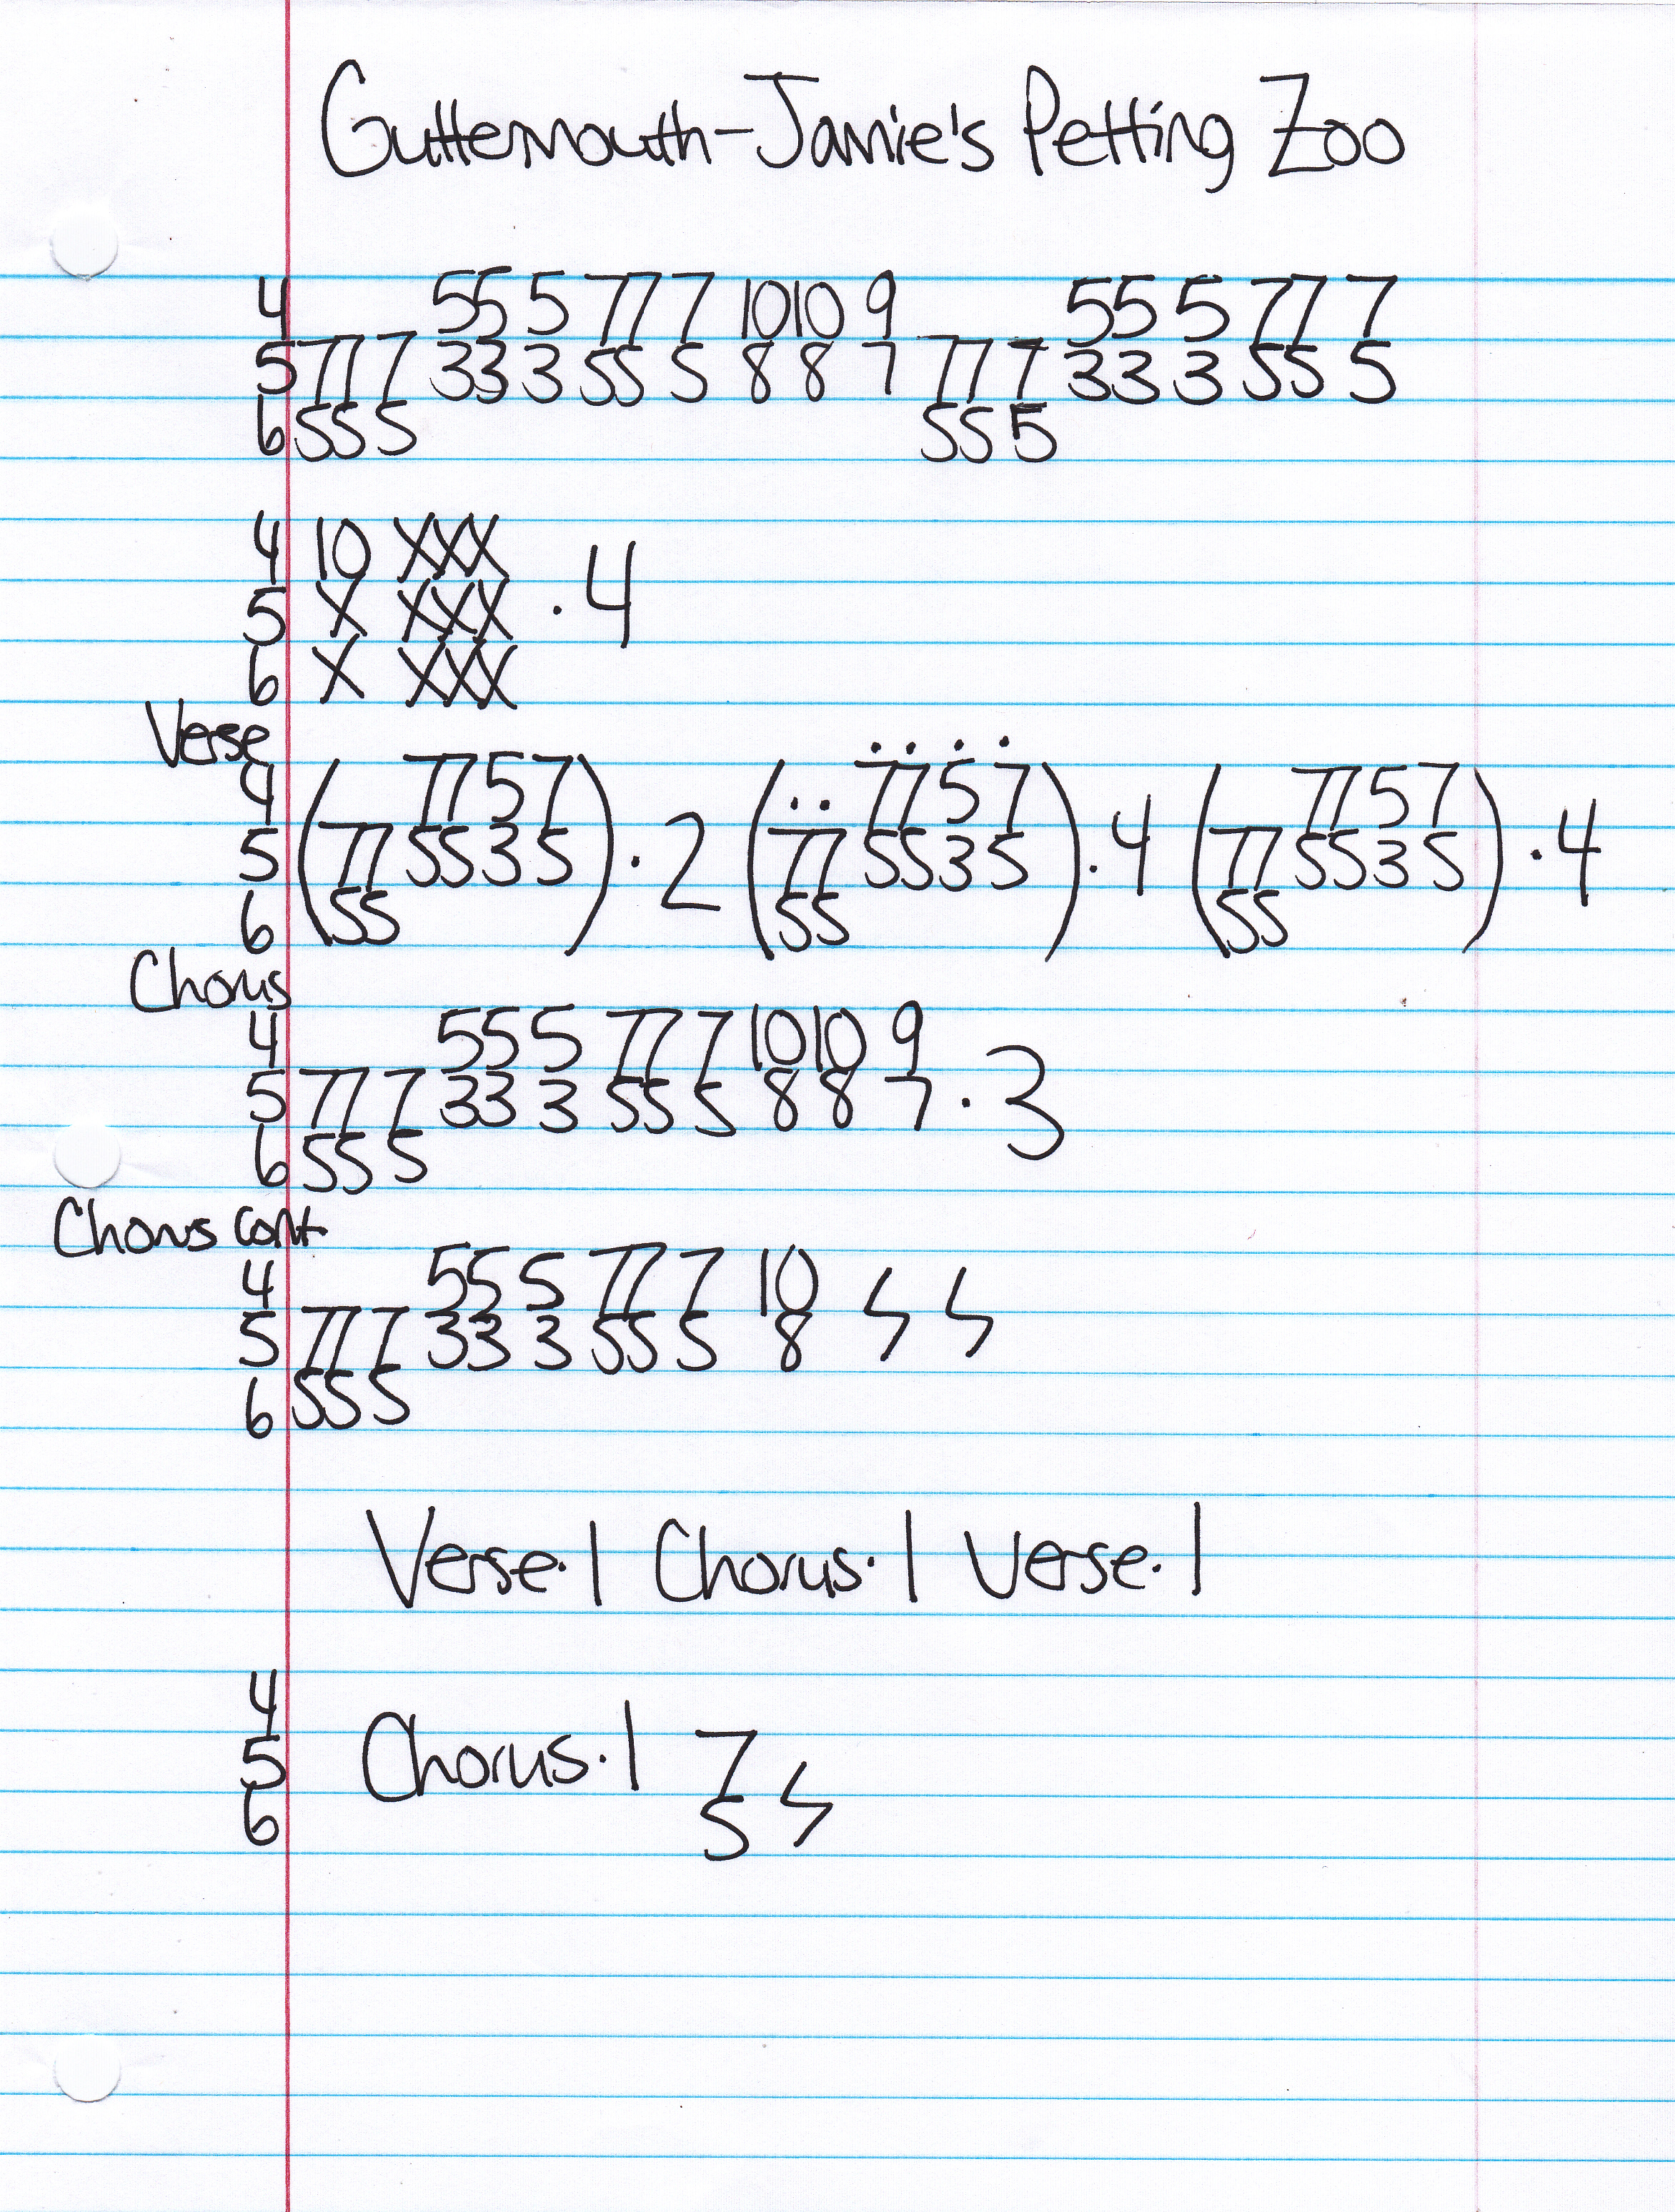 Guttermouth-Jamie's Petting Zoo
4 55 5 77 7 10 10 9 55 5 77 7
5 77 7 33 3 55 5 8 8 7 77 7 33 3 55 5
6 55 5 55 5
4 10 XXX
5 X XXX · 4
6 X XXX
Verse
4 ( 77 5 7 ) ( .. 77 5 7 ) ( 77 5 7 )
5 77 55 3 5 · 2 77 55 3 5 · 4 77 55 3 5 · 4
6 55 55 55
Chorus
4 55 5 77 7 10 10 9
5 77 7 33 3 55 5 8 8 7 · 3
6 55 5
Chorus cont
4 55 5 77 7 10
5 77 7 33 3 55 5 8
6 55 5
Verse · 1 Chorus · 1 Verse · 1
4
5 Chorus · 1 7
6 5